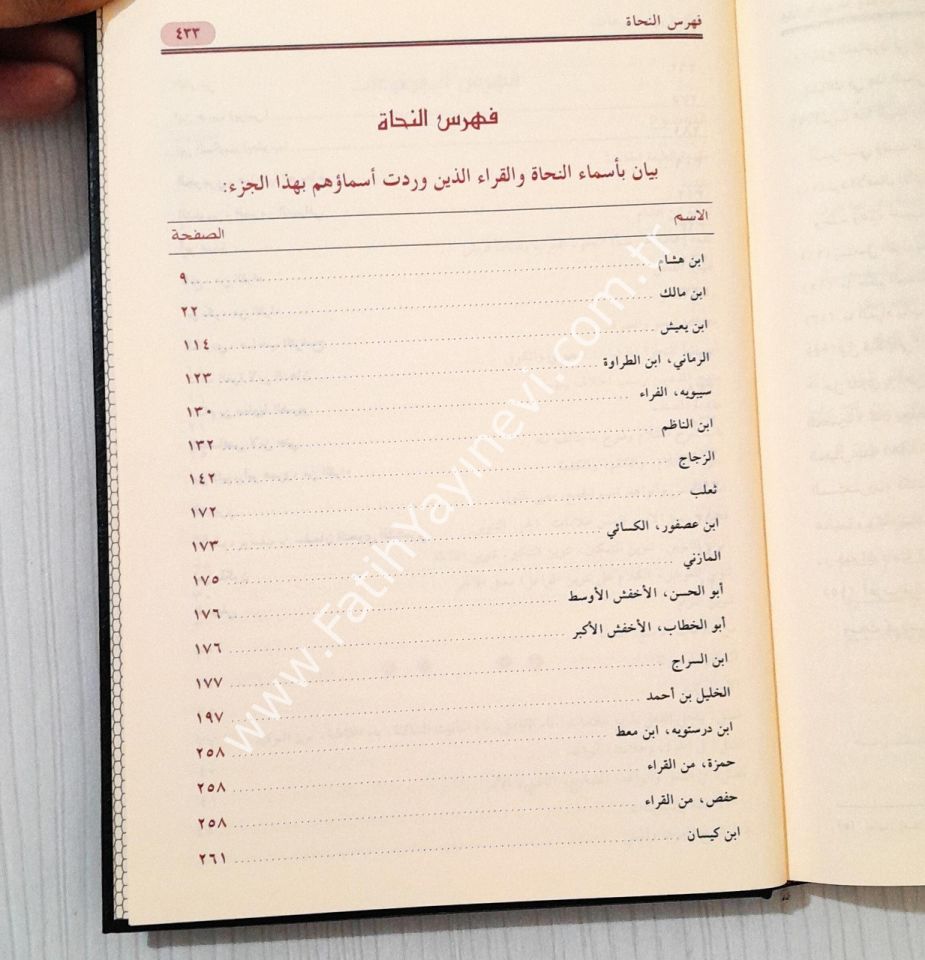 فهرس النحاة ٤٣٣
فهرس النحاة
بيان بأسماء النحاة والقراء الذين وردت أسماؤهم بهذا الجزء:
الاسم الصفحة
ابن هشام ٩
ابن مالك ٢٢
ابن يعيش ١١٤
الرماني، ابن الطراوة ١٢٣
سيبويه، الفراء ١٣٠
ابن الناظم ١٣٢
الزجاج ١٤٢
ثعلب ١٧٢
ابن عصفور، الكسائي ١٧٣
المازني ١٧٥
أبو الحسن، الأخفش الأوسط ١٧٦
أبو الخطاب، الأخفش الأكبر ١٧٦
ابن السراج ١٧٧
الخليل بن أحمد ١٩٧
ابن درستويه، ابن معط ٢٥٨
حمزة، من القراء ٢٥٨
حفص، من القراء ٢٥٨
ابن كيسان ٢٦١
www.FatihYayinevi.com.tr